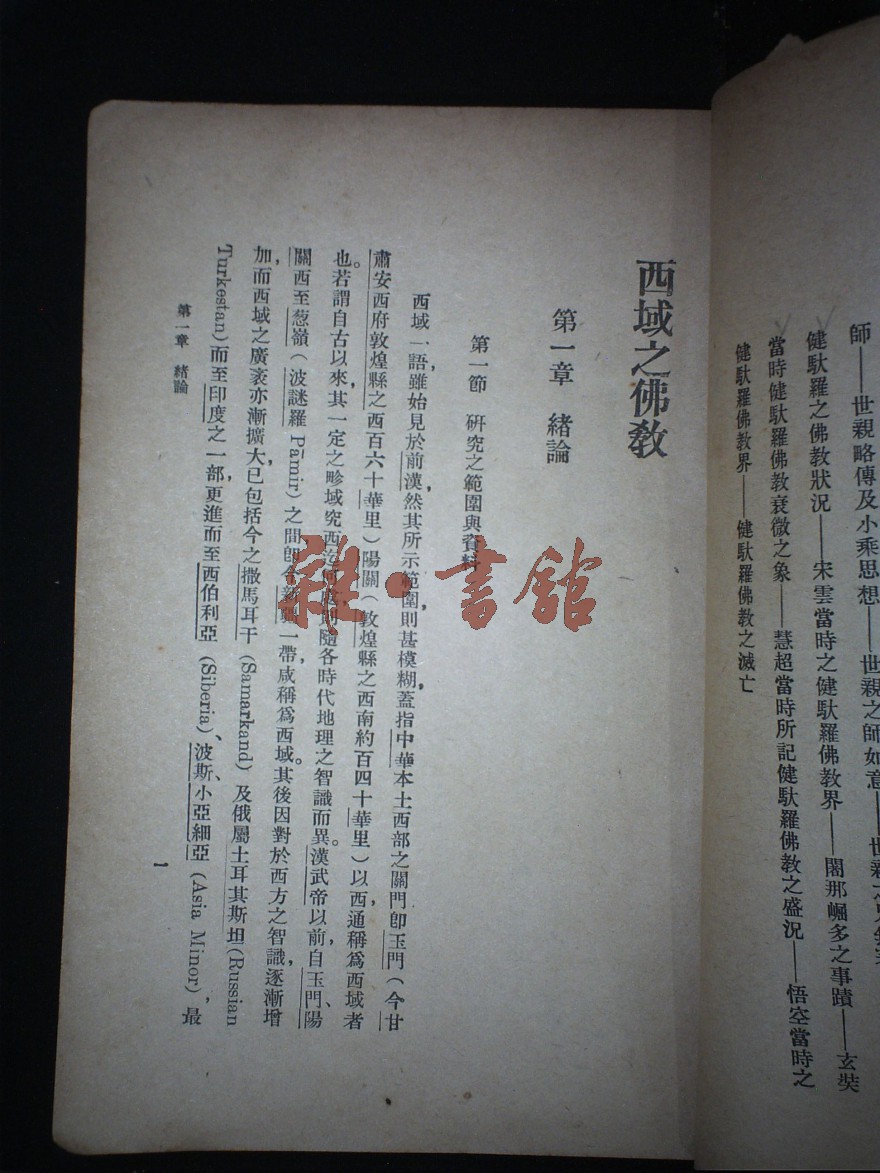 師——世親略傳及小乘思想——世親之師如意——世親之
健馱羅之佛教狀況——宋雲當時之健馱羅佛教界——闍那崛多之事蹟——玄奘
當時健馱羅佛教衰微之象——慧超當時所記健馱羅佛教之盛況——悟空當時之
健馱羅佛教界——健馱羅佛教之滅亡
西域之佛教
第一章 緒論
第一節 研究之範圍與資料
西域一語，雖始見於前漢，然其所示範圍，則甚模糊，蓋指中華本土西部之關門卽玉門（今甘
肅安西府敦煌縣之西百六十華里）陽關（敦煌縣之西南約百四十華里）以西，通稱爲西域者
也。若謂自古以來，其一定之畛域究西迄何處，則隨各時代地理之智識而異。漢武帝以前，自玉門、陽
關西至葱嶺（波謎羅 Pāmir）之間，卽今新疆一帶，咸稱爲西域。其後因對於西方之智識，逐漸增
加，而西域之廣袤亦漸擴大，已包括今之撒馬耳干（Samarkand）及俄屬土耳其斯坦（Russian
Turkestan）而至印度之一部，更進而至西伯利亞（Siberia）、波斯、小亞細亞（Asia Minor），最
第一章 緒論
1
雜·書館